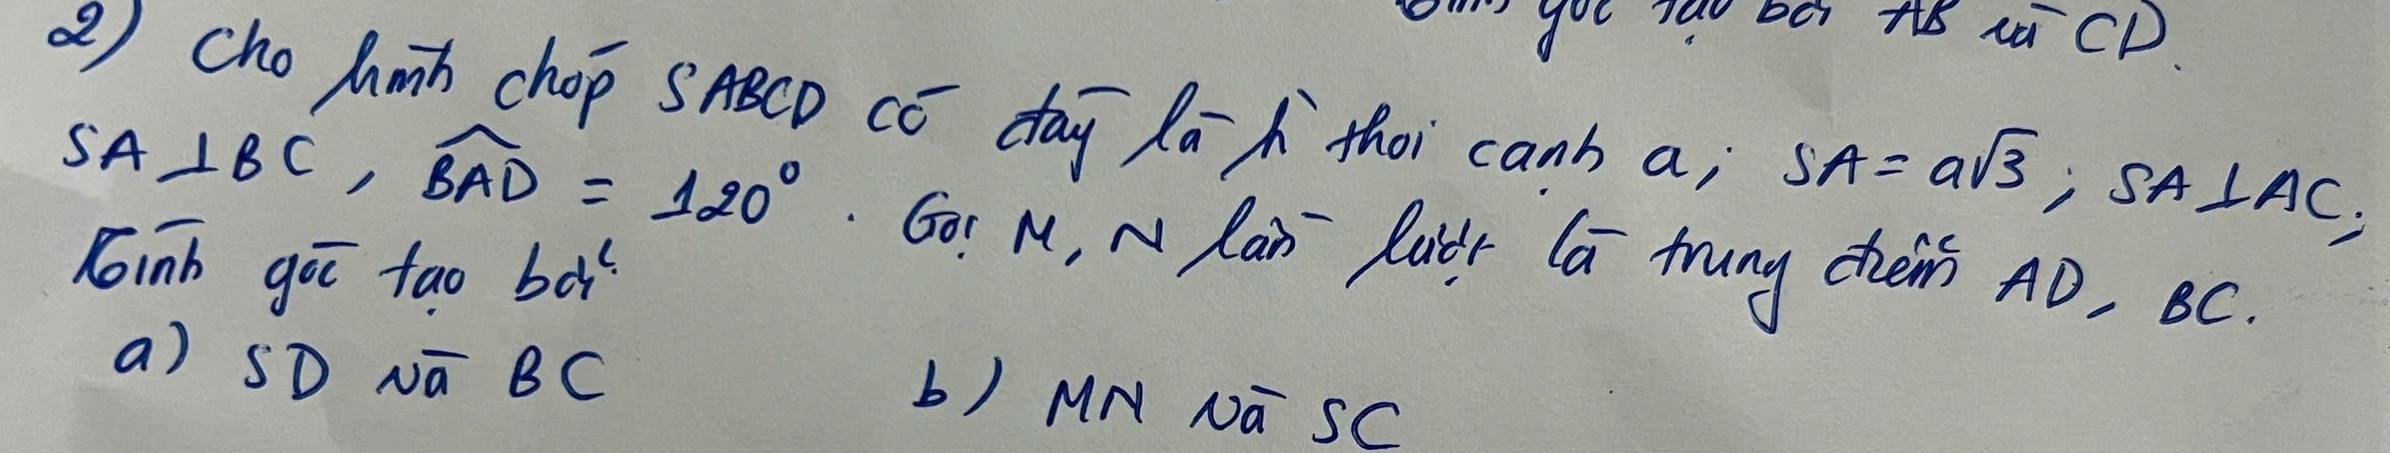 góc tạo bởi AB và CD.
2) Cho hình chóp SABCD có đáy là h̀ thoi cạnh a; SA = a√3; SA⊥AC;
SA⊥BC, \widehat{BAD} = 120°. Gọi M, N lần lượt là trung điểm AD, BC.
Tính góc tạo bởi
a) SD và BC
b) MN và SC